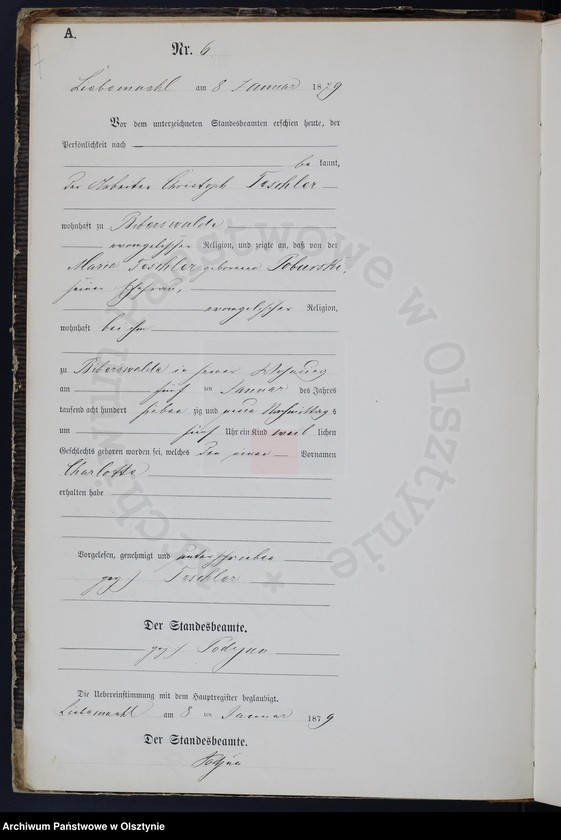 A.
Nr. 6
Liebemühl am 8 Januar 1879
Vor dem unterzeichneten Standesbeamten erschien heute, der
Persönlichkeit nach
be kannt,
der Christoph Teschler
wohnhaft zu Biberswalde
evangelischer Religion, und zeigte an, daß von der
Marie Teschler geborenen
seiner Ehefrau,
evangelischer Religion,
wohnhaft bei ihm
zu Biberswalde in seiner Wohnung
am fünf ten Januar des Jahres
tausend acht hundert sieben zig und neun Nachmittag s
um fünf Uhr ein Kind weib lichen
Geschlechts geboren worden sei, welches den einen Vornamen
Charlotte
erhalten habe
Vorgelesen, genehmigt und unterschrieben
gez) Teschler
Der Standesbeamte.
gez)
Die Uebereinstimmung mit dem Hauptregister beglaubigt.
Liebemühl am 8 ten Januar 1879
Der Standesbeamte.
Archiwum Państwowe w Olsztynie
Archiwum Państwowe w Olsztynie *